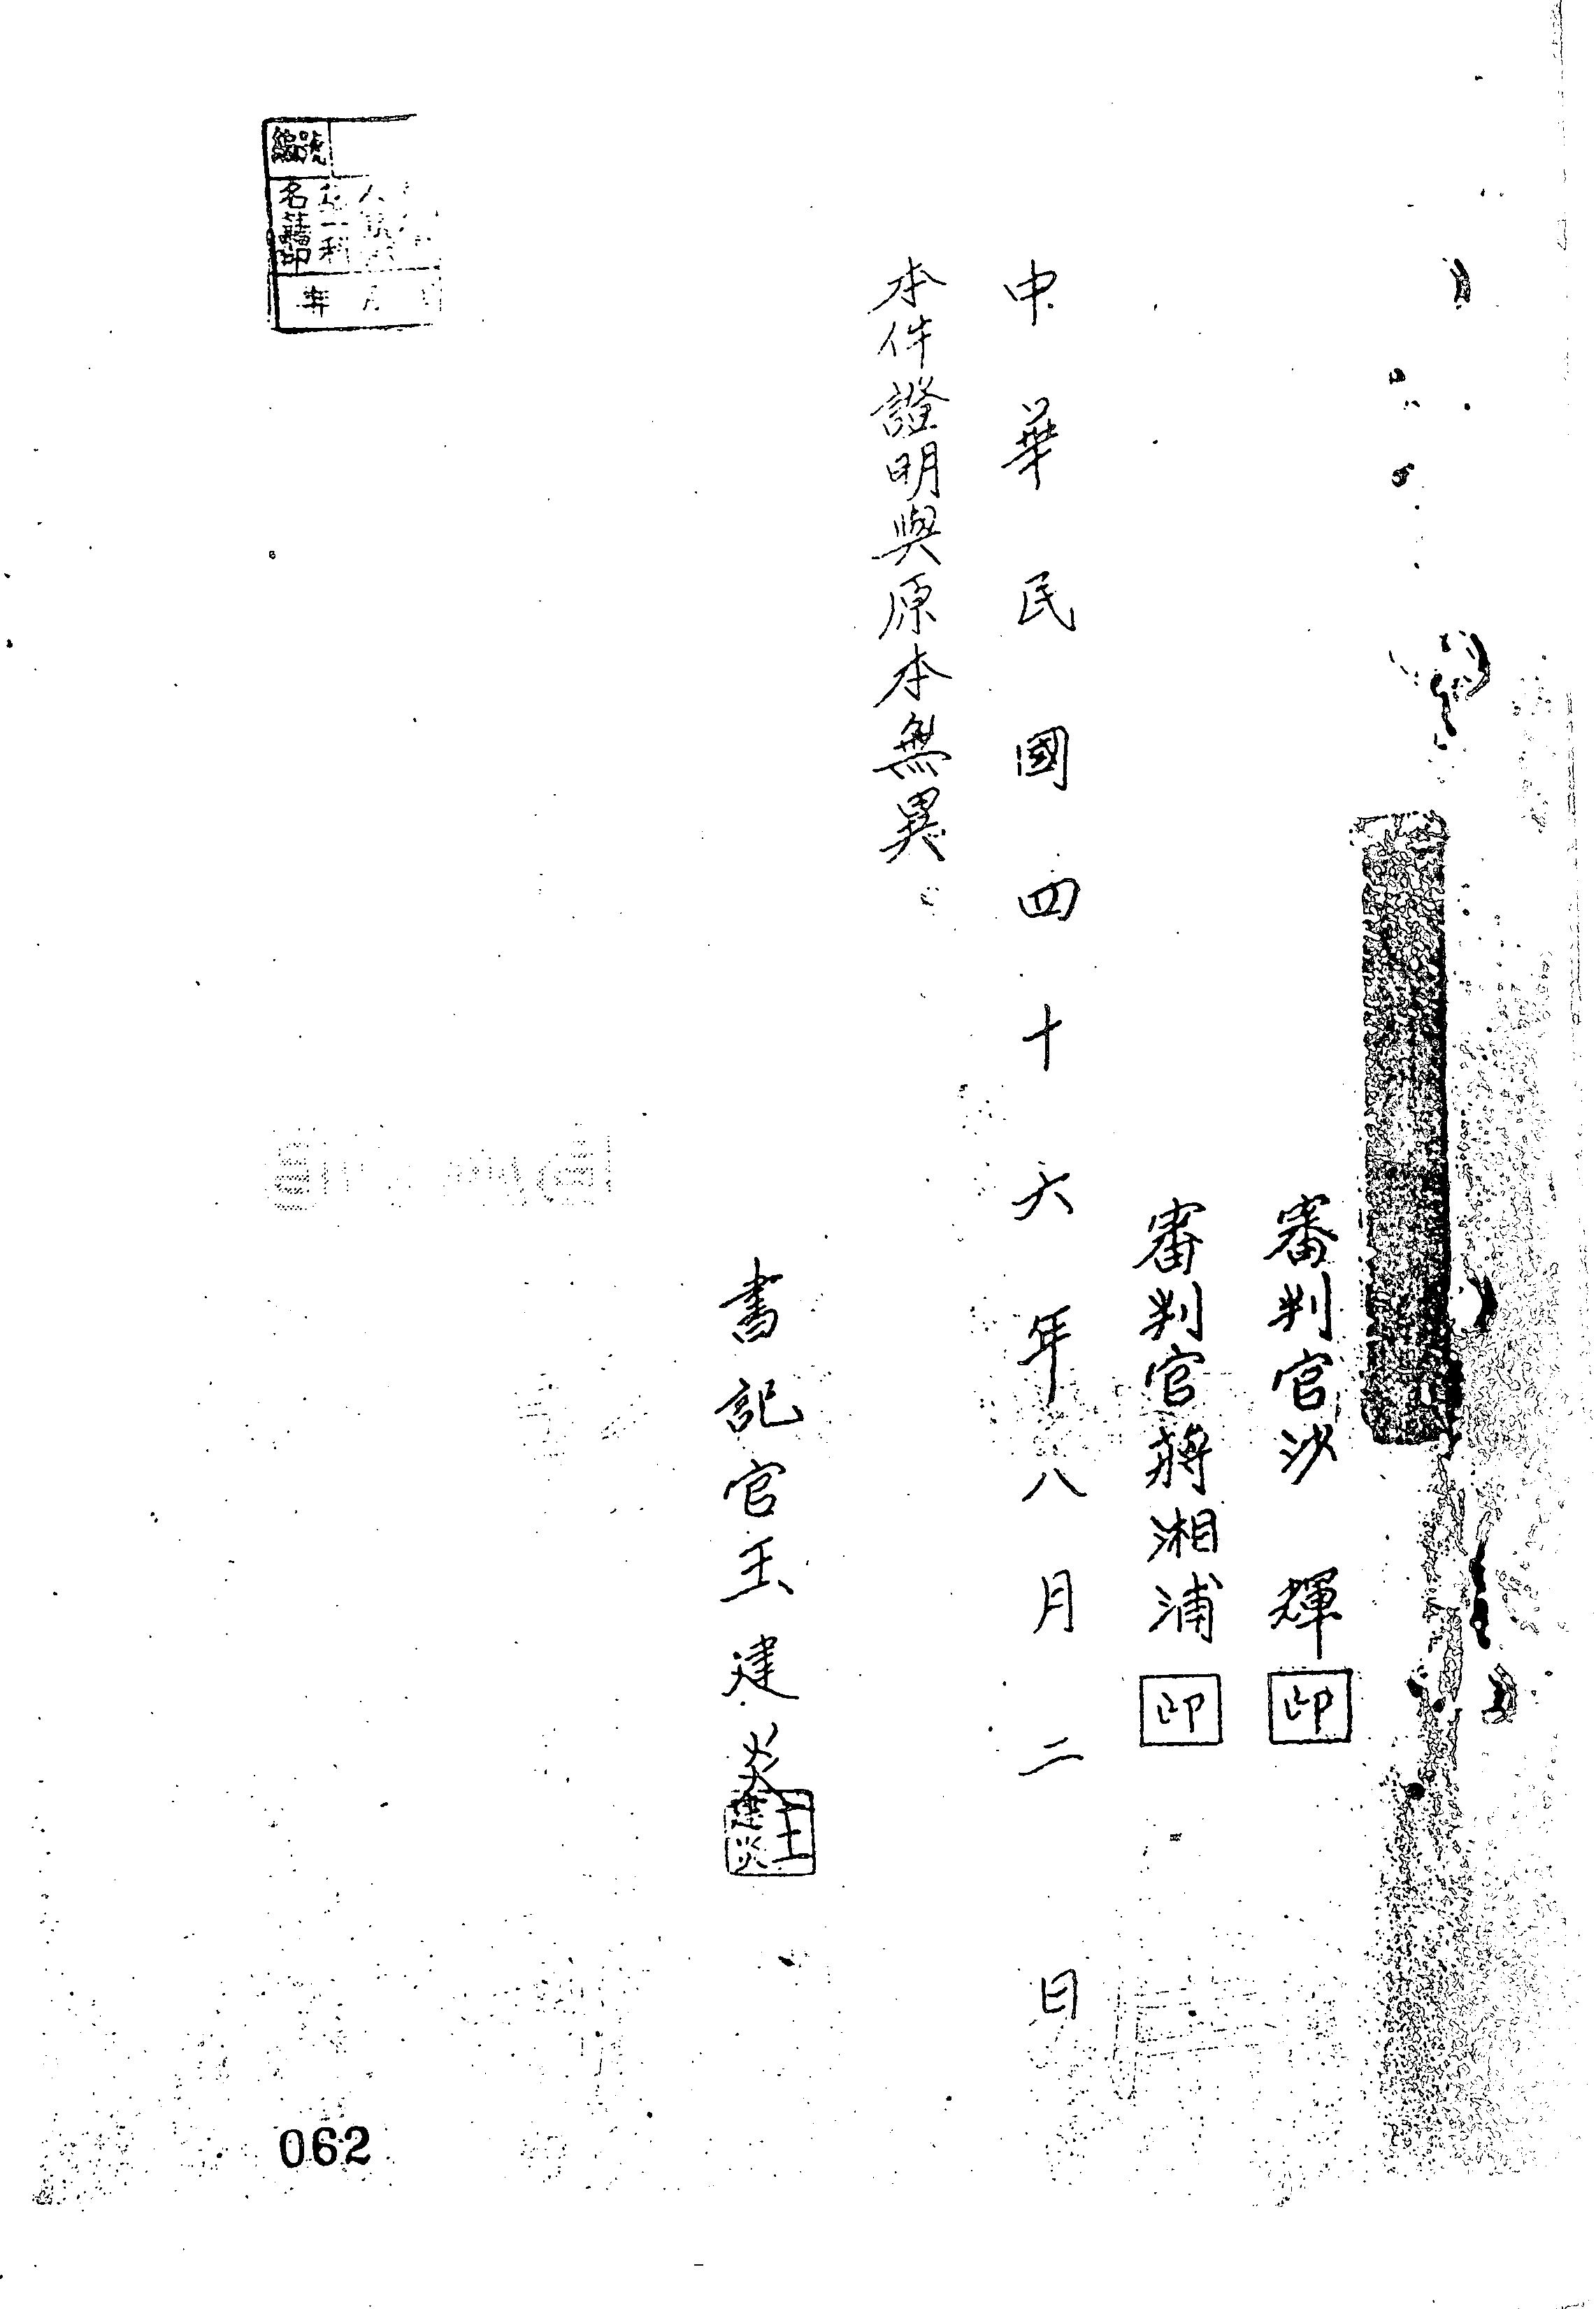 審判官沙 輝 印
審判官蔣湘浦 印
中華民國四十六年八月二日
本件證明與原本無異。
書記官王建炎
王建炎
編號
年月
062